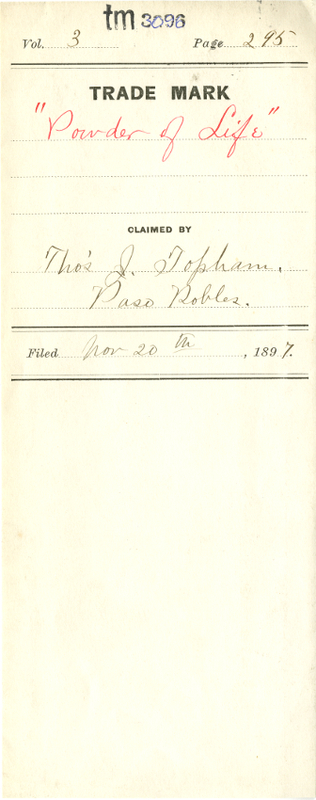 tm 3096
Vol. 3 Page 295
TRADE MARK
"Powder of Life"
CLAIMED BY
Tho's J. Topham.
Paso Robles.
Filed Nov 20th, 1897.